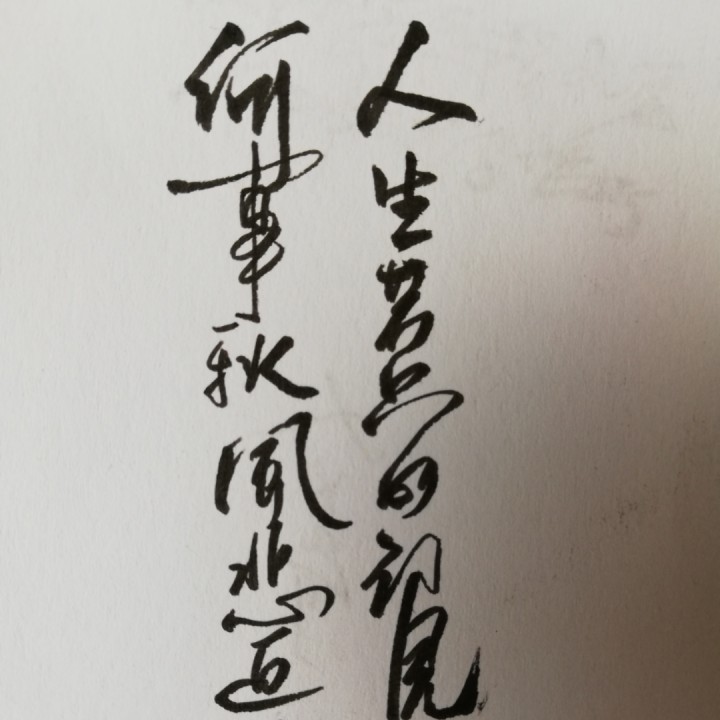 人生若只如初見
何事秋風悲画